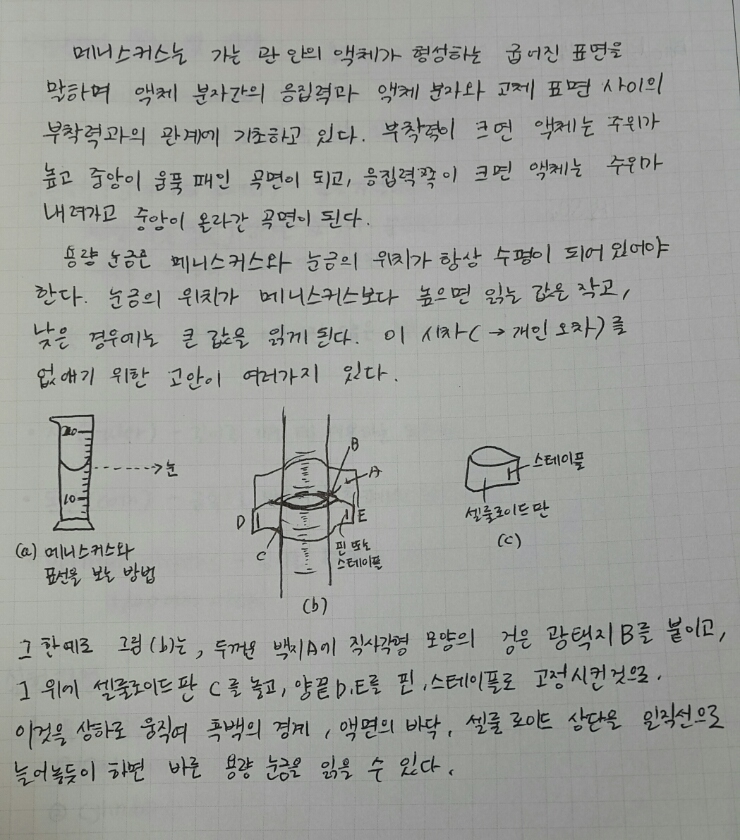 메니스커스는 가는 관 안의 액체가 형성하는 굽어진 표면을
말하며 액체 분자간의 응집력과 액체 분자와 고체 표면 사이의
부착력과의 관계에 기초하고 있다. 부착력이 크면 액체는 주위가
높고 중앙이 움푹 패인 곡면이 되고, 응집력쪽이 크면 액체는 주위가
내려가고 중앙이 올라간 곡면이 된다.
용량 눈금은 메니스커스와 눈금의 위치가 항상 수평이 되어 있어야
한다. 눈금의 위치가 메니스커스보다 높으면 읽는 값은 작고,
낮은 경우에는 큰 값을 읽게 된다. 이 시차(→ 개인 오차)를
없애기 위한 고안이 여러가지 있다.
20
10
→눈
(a) 메니스커스와
표선을 보는 방법
B
A
D
E
C
핀 또는
스테이플
(b)
스테이플
셀룰로이드 판
(c)
그 한예로 그림(b)는, 두꺼운 백지A에 직사각형 모양의 검은 광택지B를 붙이고,
그 위에 셀룰로이드판 C를 놓고, 양끝D,E를 핀,스테이플로 고정시킨것으로.
이것을 상하로 움직여 흑백의 경계, 액면의 바닥, 셀룰로이드 상단을 일직선으로
늘어놓듯이 하면 바른 용량 눈금을 읽을 수 있다.